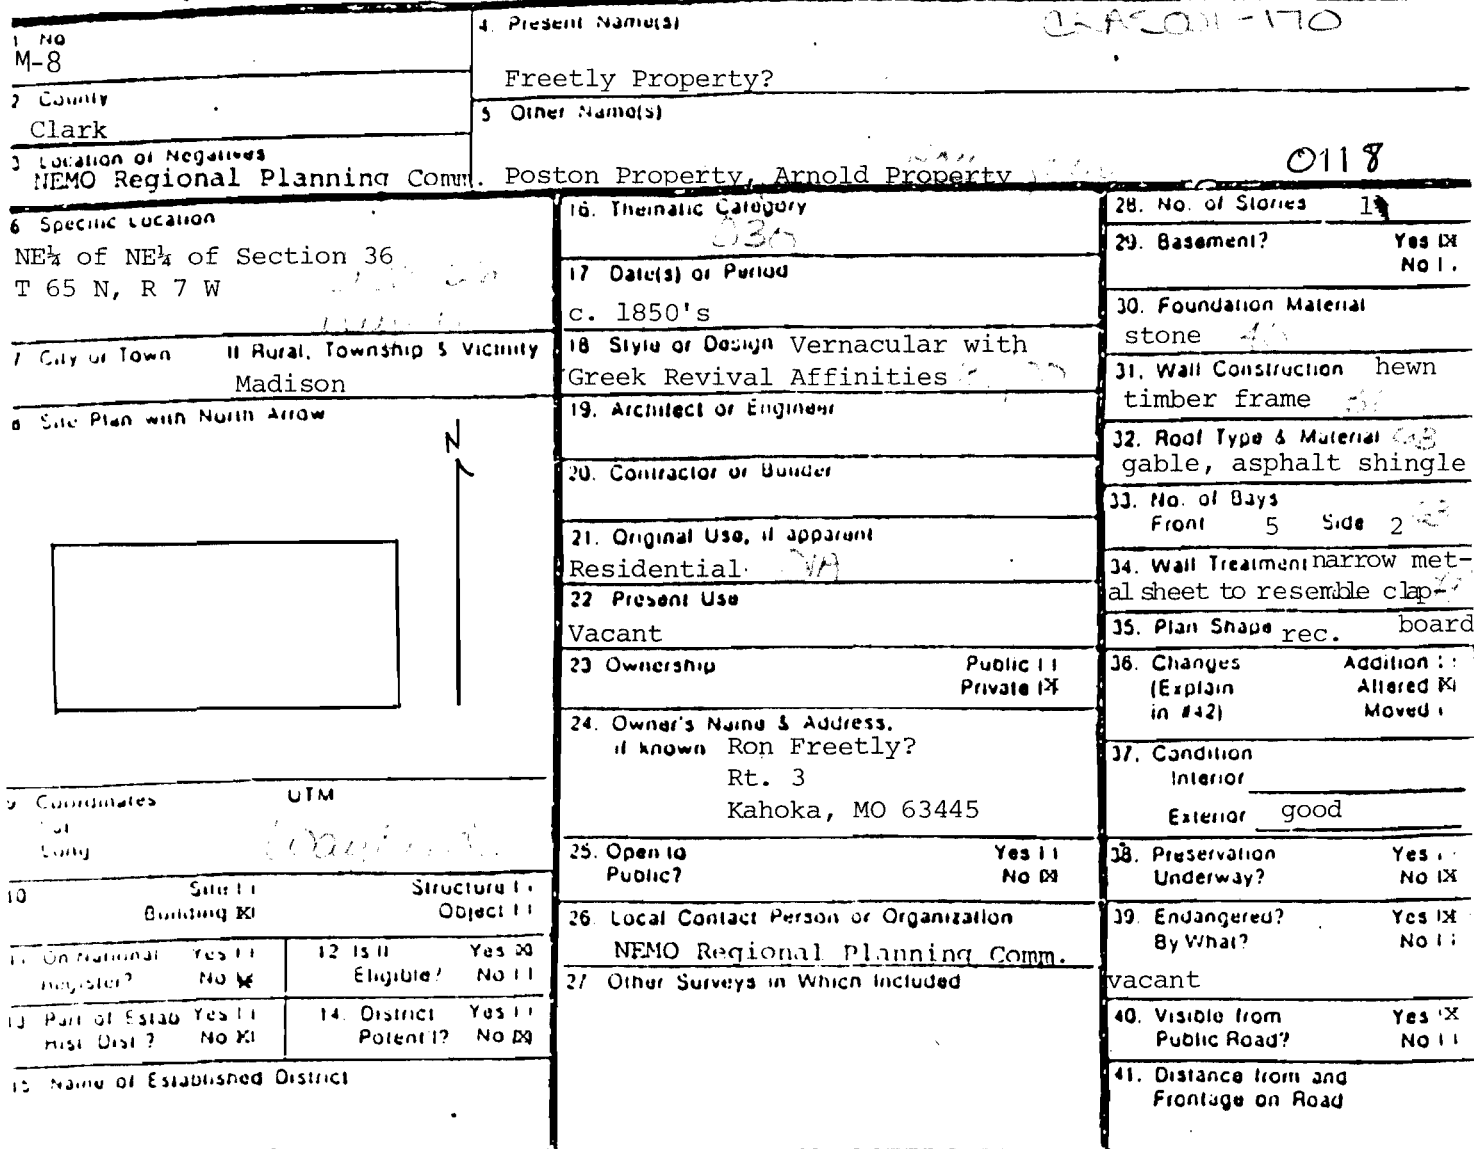 1 No
M-8
2 County
Clark
3 Location of Negatives
NEMO Regional Planning Comm.
4. Present Name(s)
Freetly Property?
5 Other Name(s)
Poston Property, Arnold Property
0118
6 Specific Location
NE¼ of NE¼ of Section 36
T 65 N, R 7 W
7 City or Town If Rural, Township & Vicinity
Madison
8 Site Plan with North Arrow
N
9 Coordinates UTM
Lat
Long
10 Site Structure
Building [X] Object
11 On National Register? Yes
No [X]
12 Is it Eligible? Yes [X]
No
13 Part of Estab Hist Dist? Yes
No [X]
14. District Potent'l? Yes
No [X]
15 Name of Established District
16. Thematic Category
030
17 Date(s) or Period
c. 1850's
18 Style or Design Vernacular with
Greek Revival Affinities
19. Architect or Engineer
20. Contractor or Builder
21. Original Use, if apparent
Residential
22 Present Use
Vacant
23 Ownership Public
Private [X]
24. Owner's Name & Address,
if known Ron Freetly?
Rt. 3
Kahoka, MO 63445
25. Open to Yes
Public? No [X]
26. Local Contact Person or Organization
NEMO Regional Planning Comm.
27 Other Surveys in Which Included
28. No. of Stories 1
29. Basement? Yes [X]
No
30. Foundation Material
stone 40
31. Wall Construction hewn
timber frame
32. Roof Type & Material
gable, asphalt shingle
33. No. of Bays
Front 5 Side 2
34. Wall Treatment narrow met-
al sheet to resemble clap-
board
35. Plan Shape rec.
36. Changes Addition
(Explain Altered [X]
in #42) Moved
37. Condition
Interior
Exterior good
38. Preservation Yes
Underway? No [X]
39. Endangered? Yes [X]
By What? No
vacant
40. Visible from Yes [X]
Public Road? No
41. Distance from and
Frontage on Road